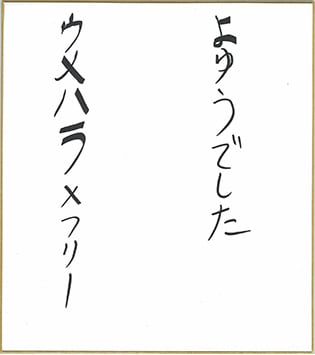 よゆうでした
ウメハラ×フリー